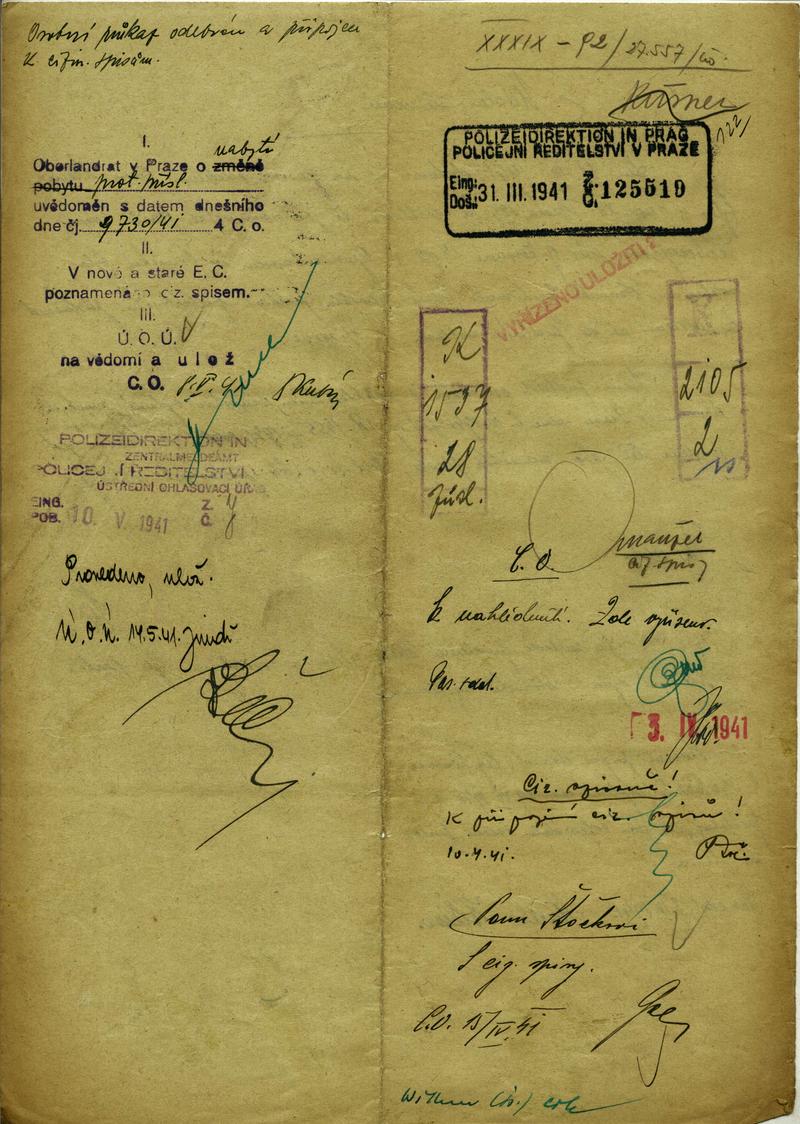 Osobní průkaz odebrán a připojen
k cizin. spisům.
I.
nabytí
Oberlandrat v Praze o změně
pobytu prot. přísl.
uvědoměn s datem dnešního
dne čj. 9730/41 4 C. o.
II.
V nové a staré E. C.
poznamenáno ciz. spisem.
III.
Ú. O. Ú.
na vědomí a ulož
C. O.
POLIZEIDIREKTION IN
ZENTRALMELDEAMT
POLICEJNÍ ŘEDITELSTVÍ
ÚSTŘEDNÍ OHLAŠOVACÍ ÚŘAD
EING. Z.
POB. 10. V. 1941 Č.
Provedeno, ulož.
Ú. O. Ú. 14.5.41.
XXXIX - 92/27.557/
POLIZEIDIREKTION IN PRAG
POLICEJNÍ ŘEDITELSTVÍ V PRAZE
Eing: Z.
Doš.: 31. III. 1941 Č. 125519
VYŘÍZENO ULOŽITI!
K
1537
28
přísl.
K
2105
2
manžel
ciz. spisy
C. O.
K nahlédnutí.
Pas. odd.
3. IV. 1941
Ciz. spisovně!
K připojení ciz. spisů!
10.4.41.
Panu Štočkovi
S ciz. spisy.
C.O. 15/IV.41